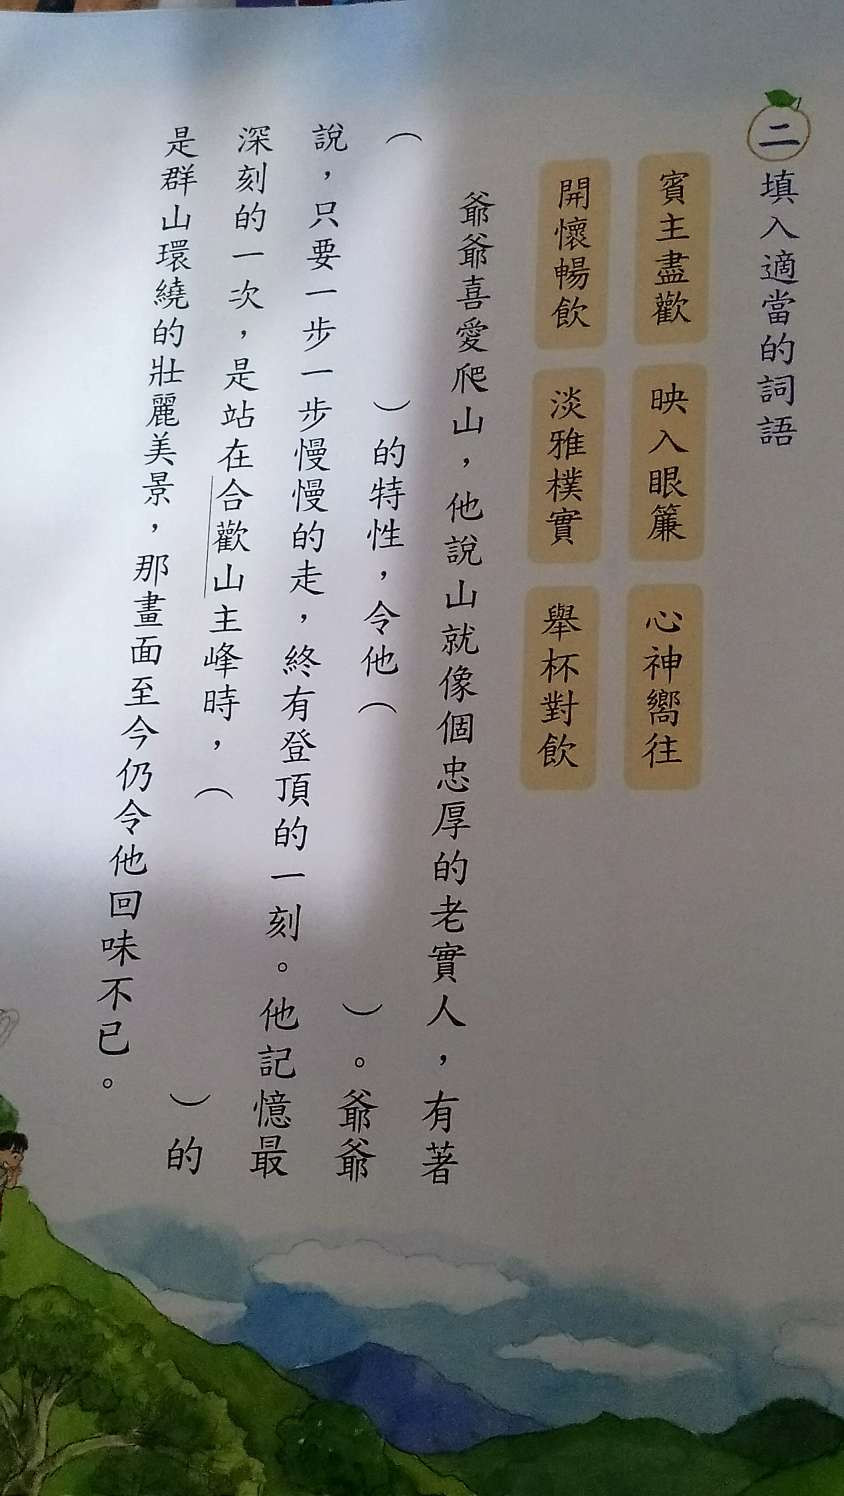 二 填入適當的詞語
賓主盡歡 映入眼簾 心神嚮往
開懷暢飲 淡雅樸實 舉杯對飲
爺爺喜愛爬山，他說山就像個忠厚的老實人，有著
（ ）的特性，令他（ ）。爺爺
說，只要一步一步慢慢的走，終有登頂的一刻。他記憶最
深刻的一次，是站在合歡山主峰時，（ ）的
是群山環繞的壯麗美景，那畫面至今仍令他回味不已。